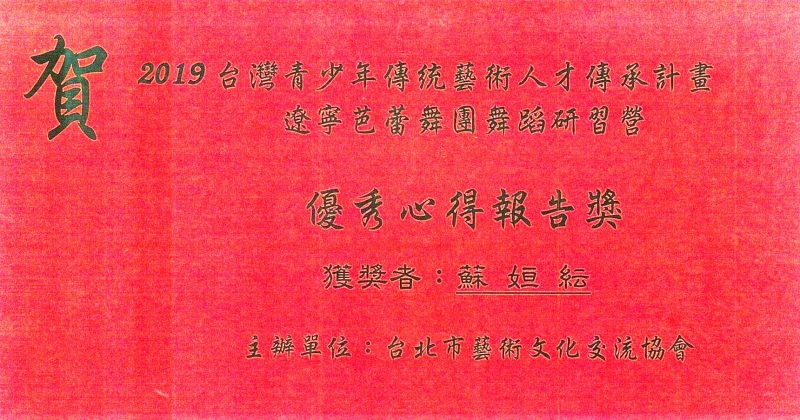 賀
2019 台灣青少年傳統藝術人才傳承計畫
遼寧芭蕾舞團舞蹈研習營
優秀心得報告獎
獲獎者：蘇 姮 紜
主辦單位：台北市藝術文化交流協會